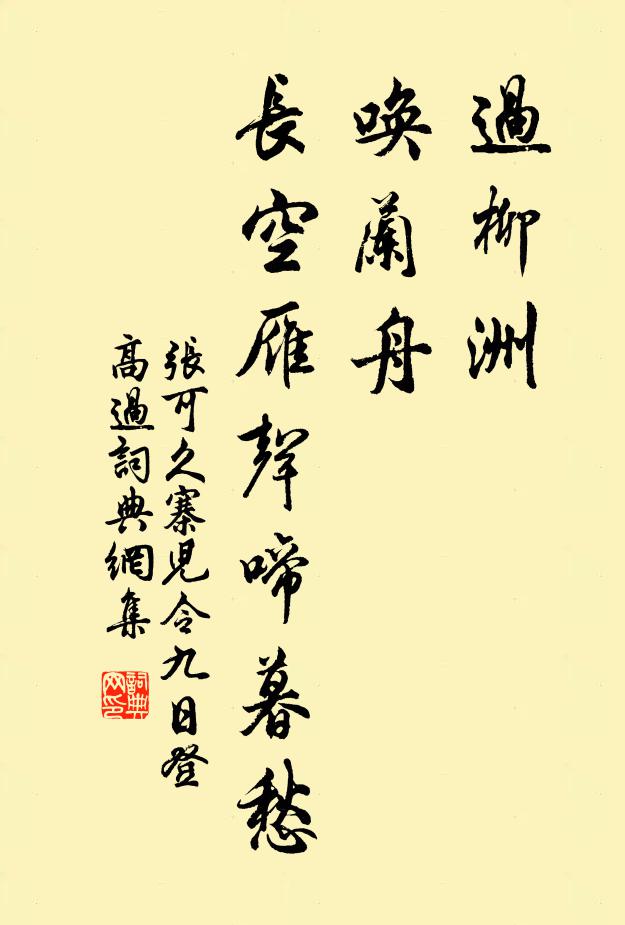 過柳洲
喚蘭舟
長空雁聲啼暮愁
張可久寨児令九日登
高過詞典網集
詞典
网印